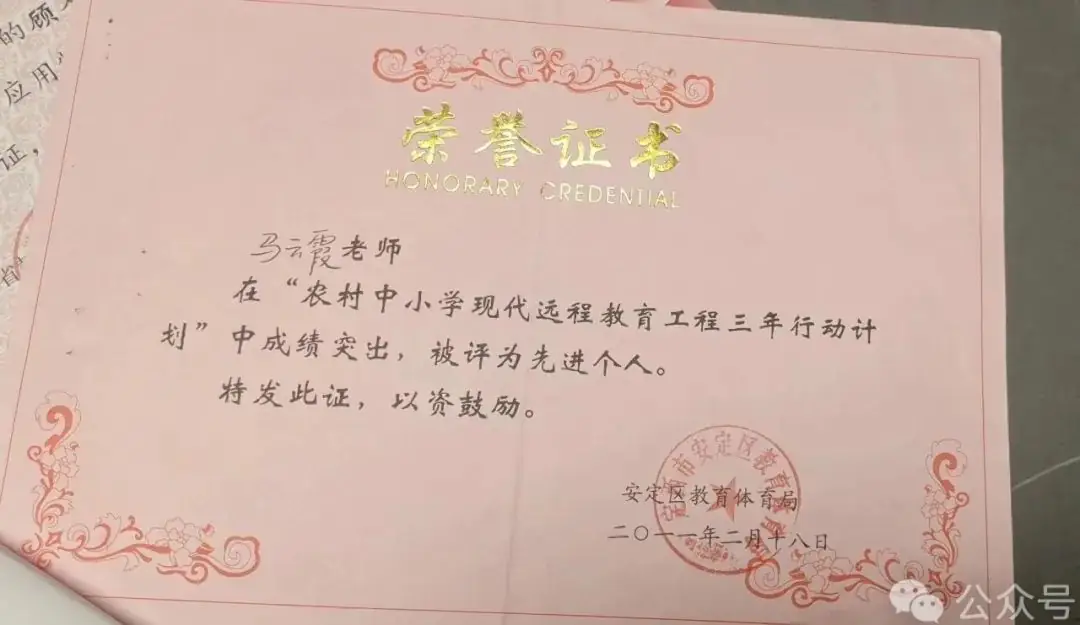 的顾
应用
证，
荣誉证书
HONORARY CREDENTIAL
马云霞老师
在“农村中小学现代远程教育工程三年行动计
划”中成绩突出，被评为先进个人。
特发此证，以资鼓励。
定西市安定区教育体育局
安定区教育体育局
二〇一一年二月十八日
公众号